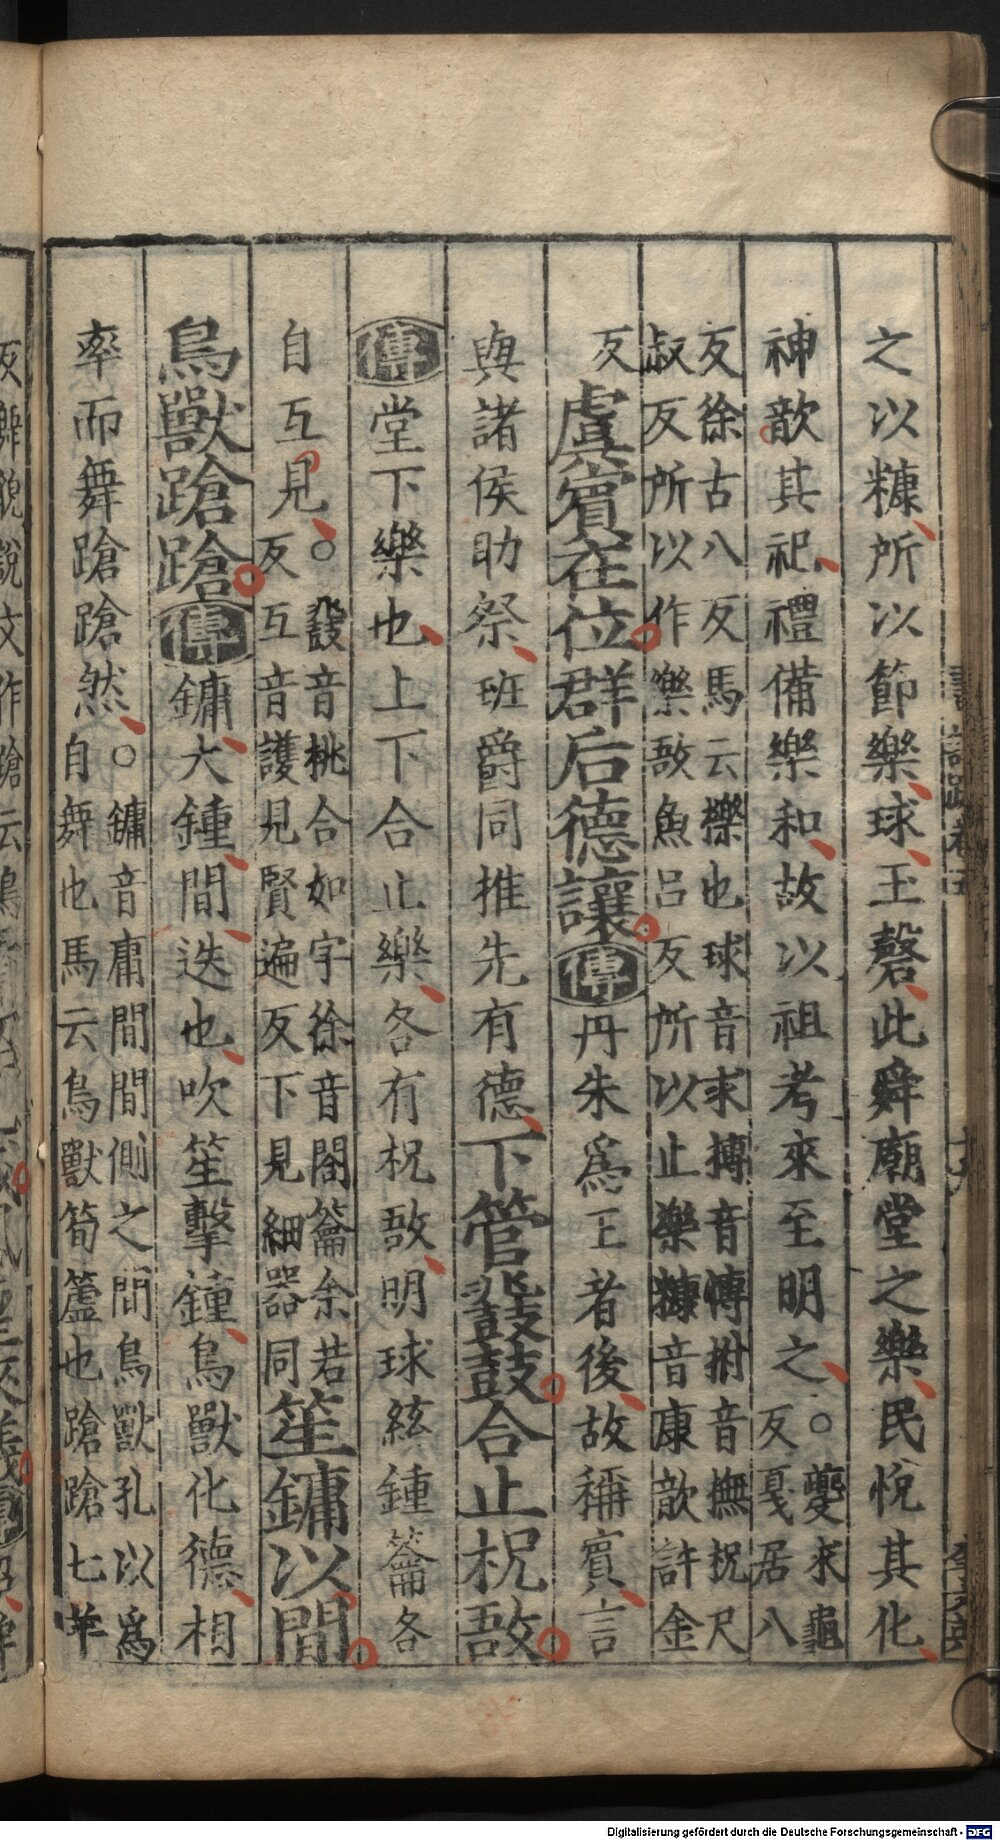 之以糠所以節樂球玉磬此舜廟堂之樂民悅其化
神歆其祀禮備樂和故以祖考來至明之○夔求龜
反戛居八
反徐古八反馬云擽也球音求搏音博拊音撫柷尺
叔反所以作樂敔魚呂反所以止樂糠音康歆許金
反虞賓在位群后德讓傳丹朱爲王者後故稱賓言
與諸侯助祭班爵同推先有德下管鼗鼓合止柷敔
傳堂下樂也上下合止樂各有柷敔明球絃鍾籥各
自互見○鼗音桃合如字徐音閤籥余若
反互音護見賢遍反下見細器同笙鏞以間
鳥獸蹌蹌傳鏞大鍾間迭也吹笙擊鍾鳥獸化德相
率而舞蹌蹌然○鏞音庸間間側之間鳥獸孔以爲
自舞也馬云鳥獸筍簴也蹌蹌七羊
Digitalisierung gefördert durch die Deutsche Forschungsgemeinschaft - DFG